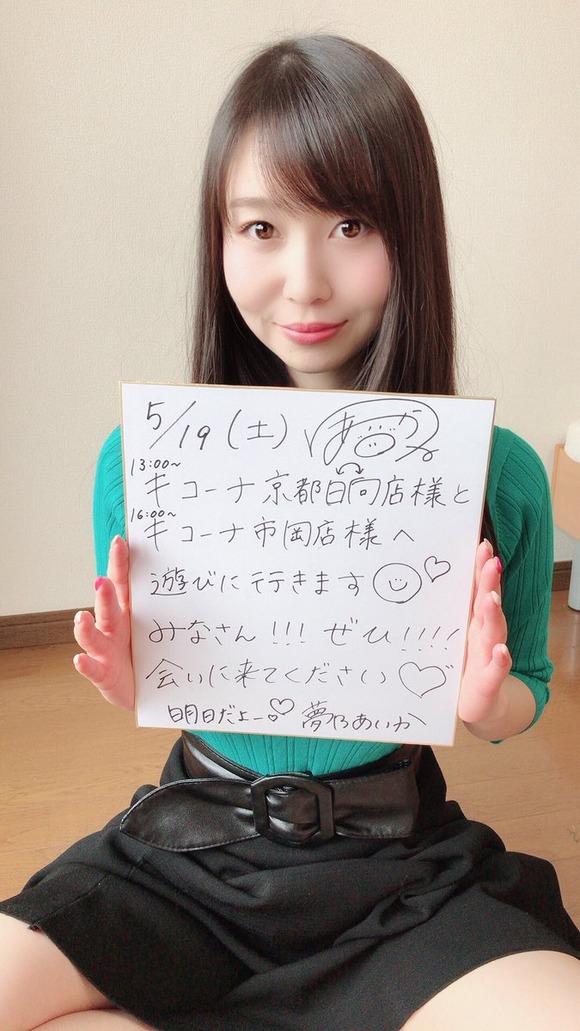 5/19(土) あいか
13:00~
キコーナ京都日向店様と
16:00~
キコーナ市岡店様へ
遊びに行きます
みなさん!!! ぜひ!!!!
会いに来てください
明日だよー! 夢乃あいか